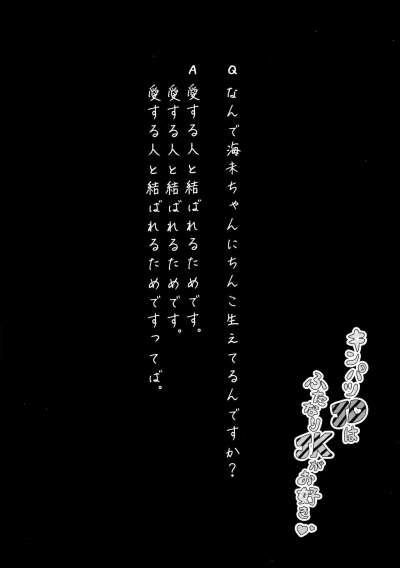 Q なんで海未ちゃんにちんこ生えてるんですか？
A 愛する人と結ばれるためです。
愛する人と結ばれるためです。
愛する人と結ばれるためですってば。
キンパツJDは
ふたなりJKがお好き♡